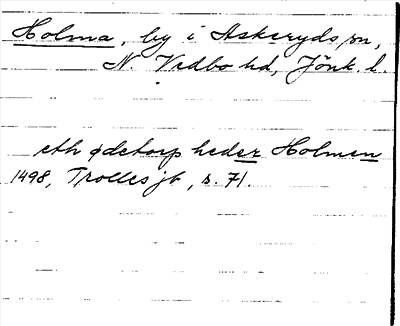 Holma, by i Askeryds sn,
N. Vedbo hd, Jönk. l.
eth ödetorp heder Holmen
1498, Trolles jb, s. 71.